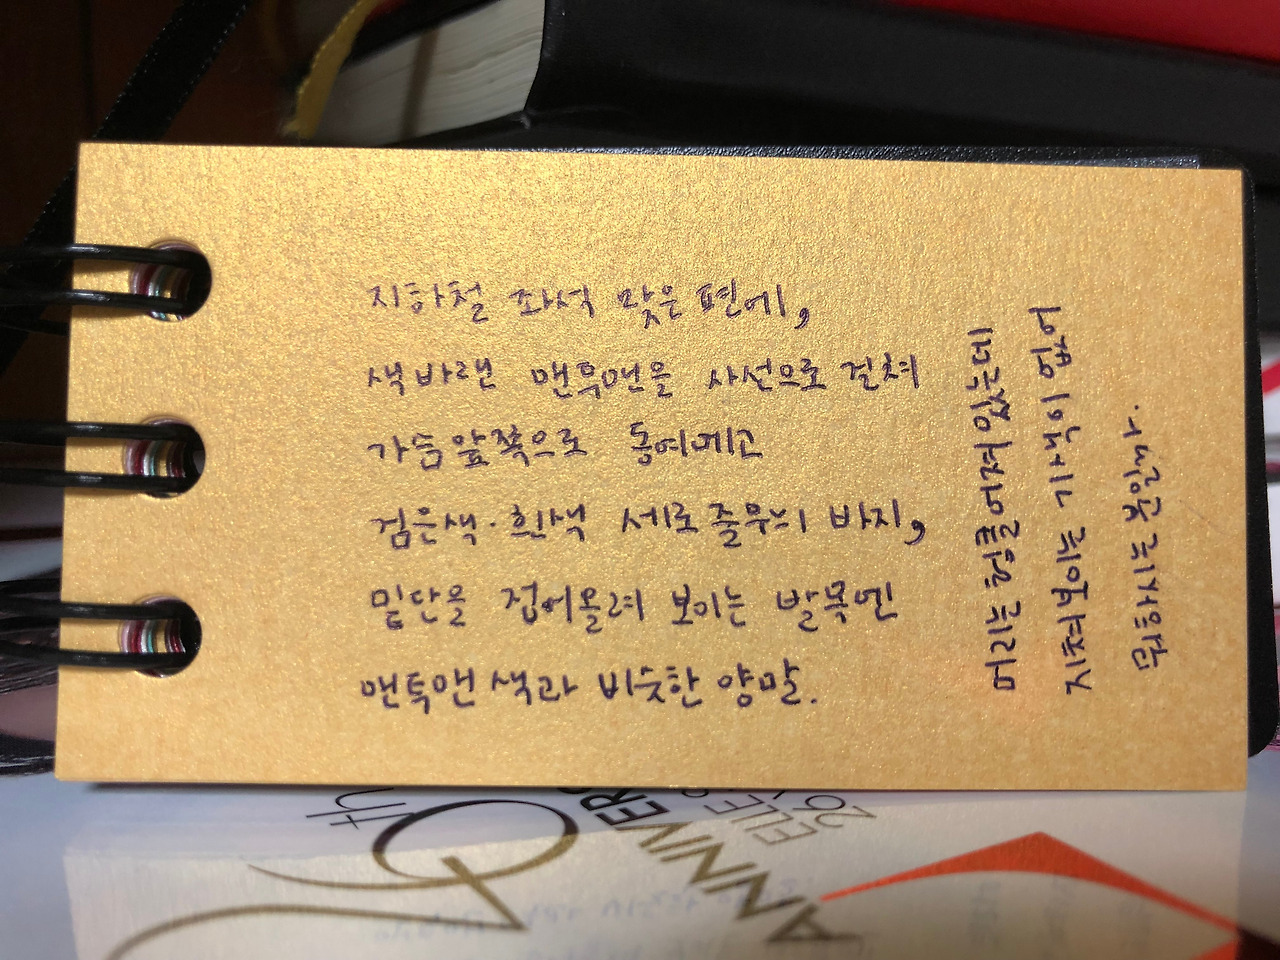 지하철 좌석 맞은 편에,
색바랜 맨투맨을 사선으로 걸쳐
가슴앞쪽으로 동여메고
검은색·흰색 세로줄무늬 바지,
밑단을 접어올려 보이는 발목엔
맨투맨색과 비슷한 양말.
머리는 헝클어져있는데
지쳐보이는 기색이 없어
뭐하시는 분일까.
th
ANNIVERS
ELE